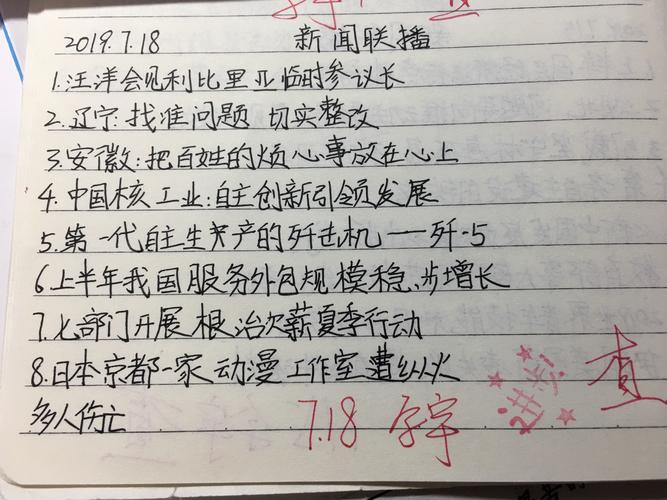 2019.7.18 新闻联播
1.汪洋会见利比里亚临时参议长
2.辽宁:找准问题 切实整改
3.安徽:把百姓的烦心事放在心上
4.中国核工业:自主创新引领发展
5.第一代自主生产的歼击机——歼-5
6上半年我国服务外包规模稳步增长
7.七部门开展根治欠薪夏季行动
8.日本京都一家动漫工作室遭纵火
多人伤亡
7.18
查